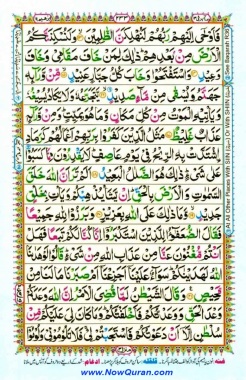 ۲۳۳
فَاَوْحٰۤى اِلَيْهِمْ رَبُّهُمْ لَنُهْلِكَنَّ الظّٰلِمِيْنَ ۙ وَلَنُسْكِنَنَّكُمُ
الْاَرْضَ مِنْۢ بَعْدِهِمْ ؕ ذٰلِكَ لِمَنْ خَافَ مَقَامِيْ وَخَافَ
وَعِيْدِ وَاسْتَفْتَحُوْا وَخَابَ كُلُّ جَبَّارٍ عَنِيْدٍ ۙ مِّنْ
وَّرَآئِهٖ جَهَنَّمُ وَيُسْقٰى مِنْ مَّآءٍ صَدِيْدٍ ۙ يَّتَجَرَّعُهٗ وَلَا يَكَادُ يُسِيْغُهٗ
وَيَاْتِيْهِ الْمَوْتُ مِنْ كُلِّ مَكَانٍ وَّمَا هُوَ بِمَيِّتٍ ؕ وَمِنْ وَّرَآئِهٖ
عَذَابٌ غَلِيْظٌ مَثَلُ الَّذِيْنَ كَفَرُوْا بِرَبِّهِمْ اَعْمَالُهُمْ كَرَمَادِ
اِۨشْتَدَّتْ بِهِ الرِّيْحُ فِيْ يَوْمٍ عَاصِفٍ ؕ لَا يَقْدِرُوْنَ مِمَّا كَسَبُوْا
عَلٰى شَيْءٍ ؕ ذٰلِكَ هُوَ الضَّلٰلُ الْبَعِيْدُ اَلَمْ تَرَ اَنَّ اللّٰهَ خَلَقَ
السَّمٰوٰتِ وَالْاَرْضَ بِالْحَقِّ ؕ اِنْ يَّشَاْ يُذْهِبْكُمْ وَيَاْتِ بِخَلْقٍ
جَدِيْدٍ ۙ وَّمَا ذٰلِكَ عَلَى اللّٰهِ بِعَزِيْزٍ وَبَرَزُوْا لِلّٰهِ جَمِيْعًا
فَقَالَ الضُّعَفٰٓؤُا لِلَّذِيْنَ اسْتَكْبَرُوْۤا اِنَّا كُنَّا لَكُمْ تَبَعًا فَهَلْ
اَنْتُمْ مُّغْنُوْنَ عَنَّا مِنْ عَذَابِ اللّٰهِ مِنْ شَيْءٍ ؕ قَالُوْا لَوْ هَدٰىنَا
اللّٰهُ لَهَدَيْنٰكُمْ ؕ سَوَآءٌ عَلَيْنَاۤ اَجَزِعْنَاۤ اَمْ صَبَرْنَا مَا لَنَا مِنْ
مَّحِيْصٍ وَقَالَ الشَّيْطٰنُ لَمَّا قُضِيَ الْاَمْرُ اِنَّ اللّٰهَ وَعَدَكُمْ
وَعْدَ الْحَقِّ وَوَعَدْتُّكُمْ فَاَخْلَفْتُكُمْ ؕ وَمَا كَانَ لِيَ عَلَيْكُمْ مِّنْ
سُلْطٰنٍ اِلَّاۤ اَنْ دَعَوْتُكُمْ فَاسْتَجَبْتُمْ لِيْ ۚ فَلَا تَلُوْمُوْنِيْ وَلُوْمُوْۤا
www.NowQuran.com